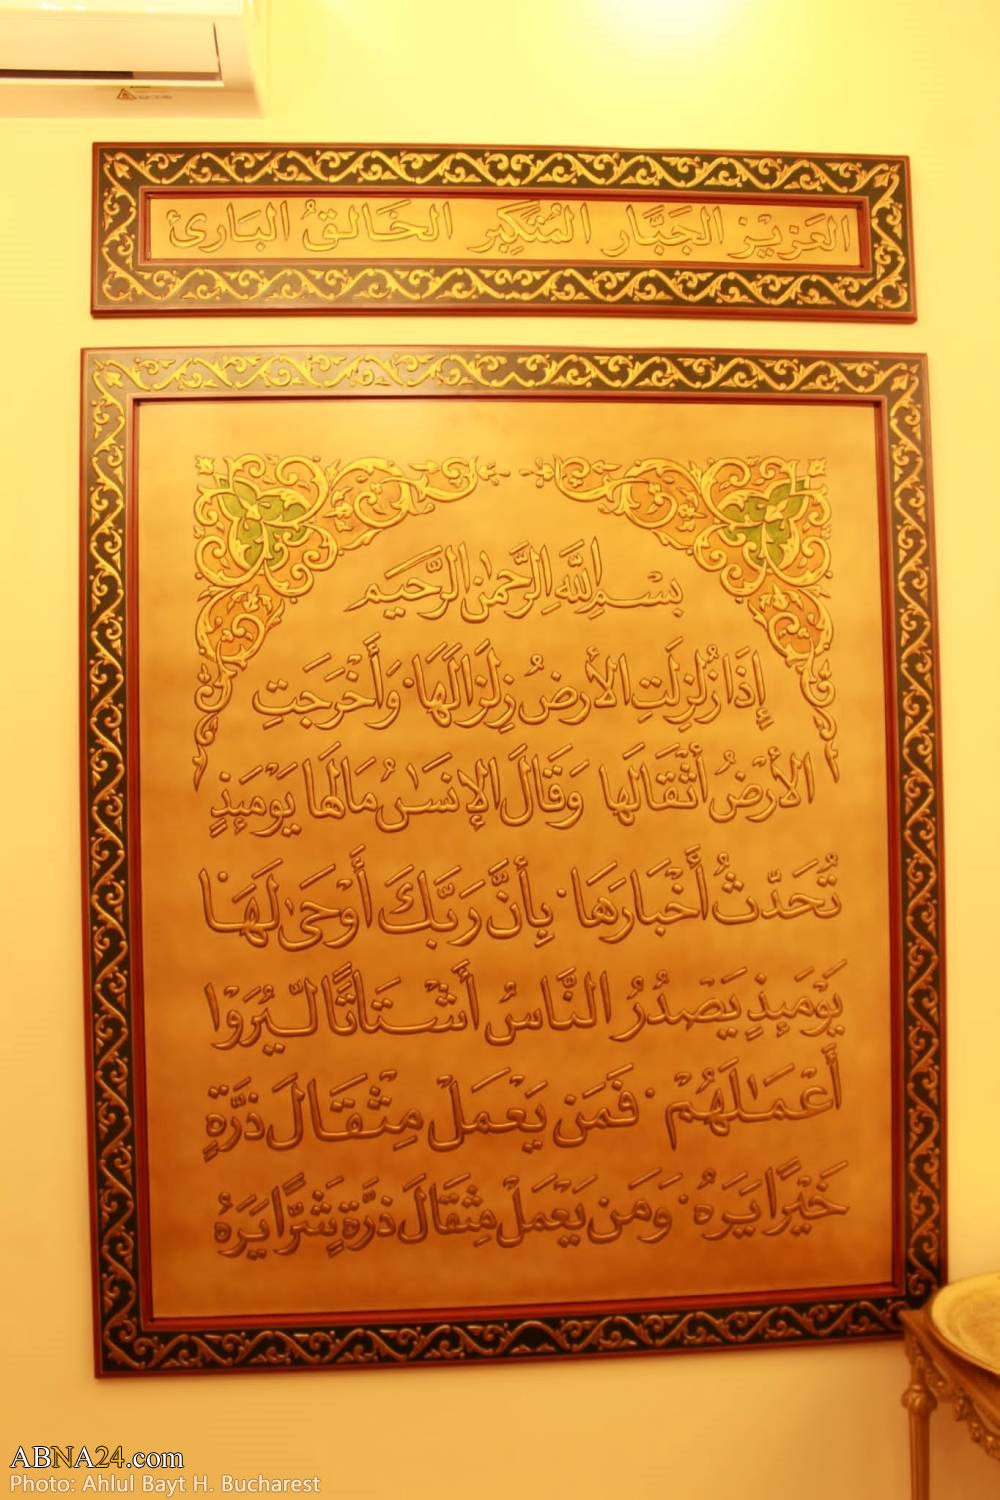 العَزيْز الجَبَّار المُتَكَبِر الخَالقُ البَارئ
بسْمِ اللَّهِ الرَّحمٰنِ الرَّحيَم
إِذَا زُلزِلَتِ الأرضُ زِلزَالَهَا ۰ وَأَخْرَجَتِ
الأَرْضُ أثْقَالَها وَقَالَ الإنسَـٰنُ مَالهَا يَوْمَئِذٍ
تُحَدّثُ أَخْبَارَهَا ۰ بِأنَّ رَبَّكَ أَوْحَىٰ لَهَا
يَوْمَئِذٍ يَصْدُرُ النَّاسُ أَشْتَاتًا لّيُرَوْا
أَعْمَـٰلَهُمْ ۰ فَمَن يَعْمَلْ مِثْقَالَ ذَرَّةٍ
خَيْرًا يَرَهُ ۰ وَمَن يَعْمَلْ مِثقَالَ ذرَّةٍ شَرًّا يَرَهُ
ABNA24.com
Photo: Ahlul Bayt H. Bucharest